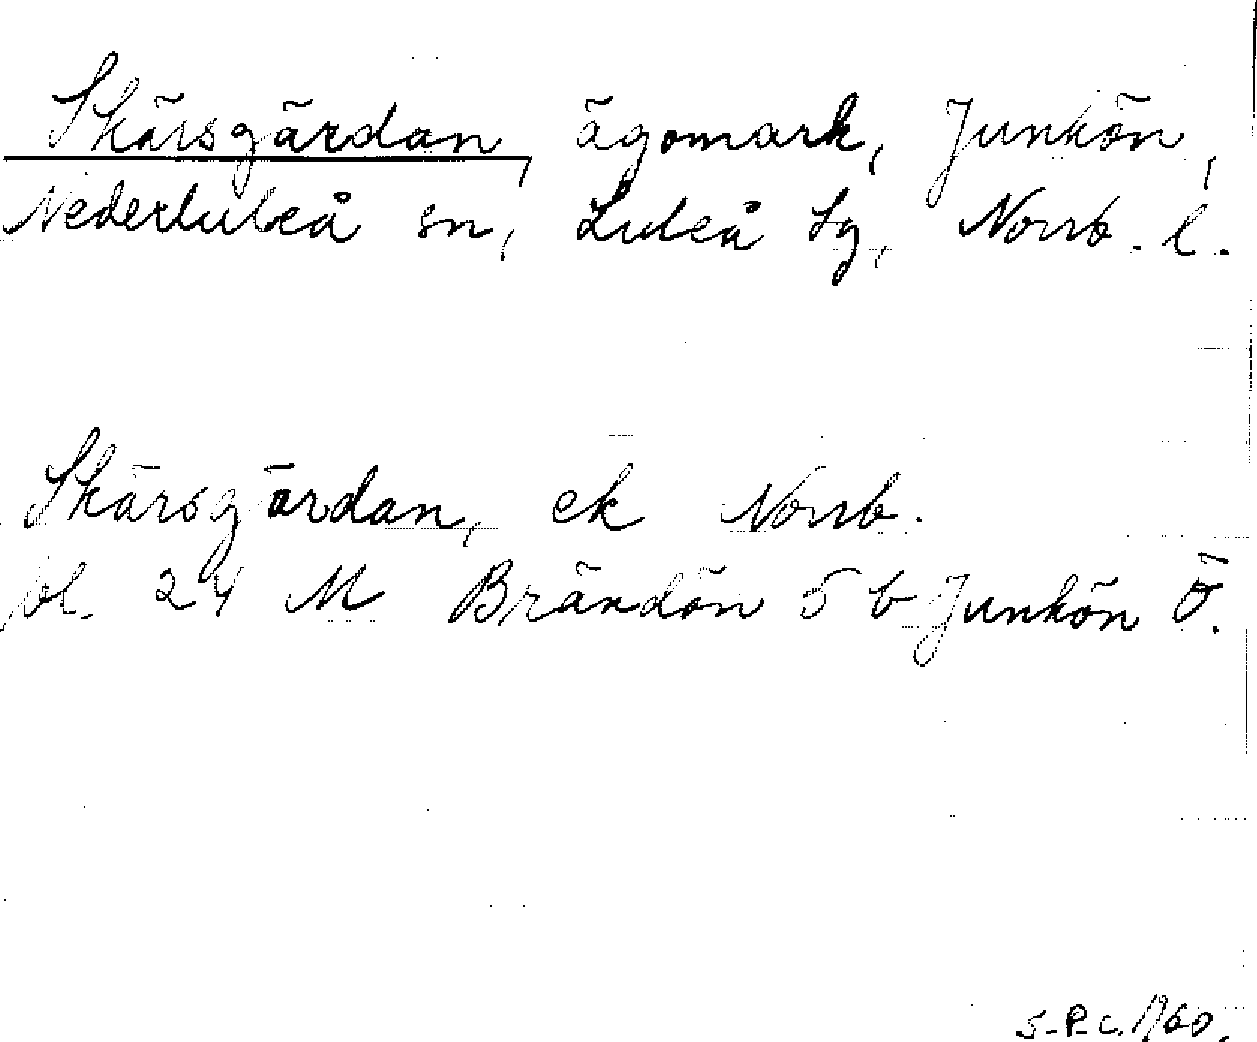 Skärsgärdan, ägomark, Junkön,
Nederluleå sn, Luleå tg, Norrb. l.
Skärsgärdan, ek Norrb.
bl. 24 M Brändön 5 b Junkön Ö.
S.P.C. 1960.